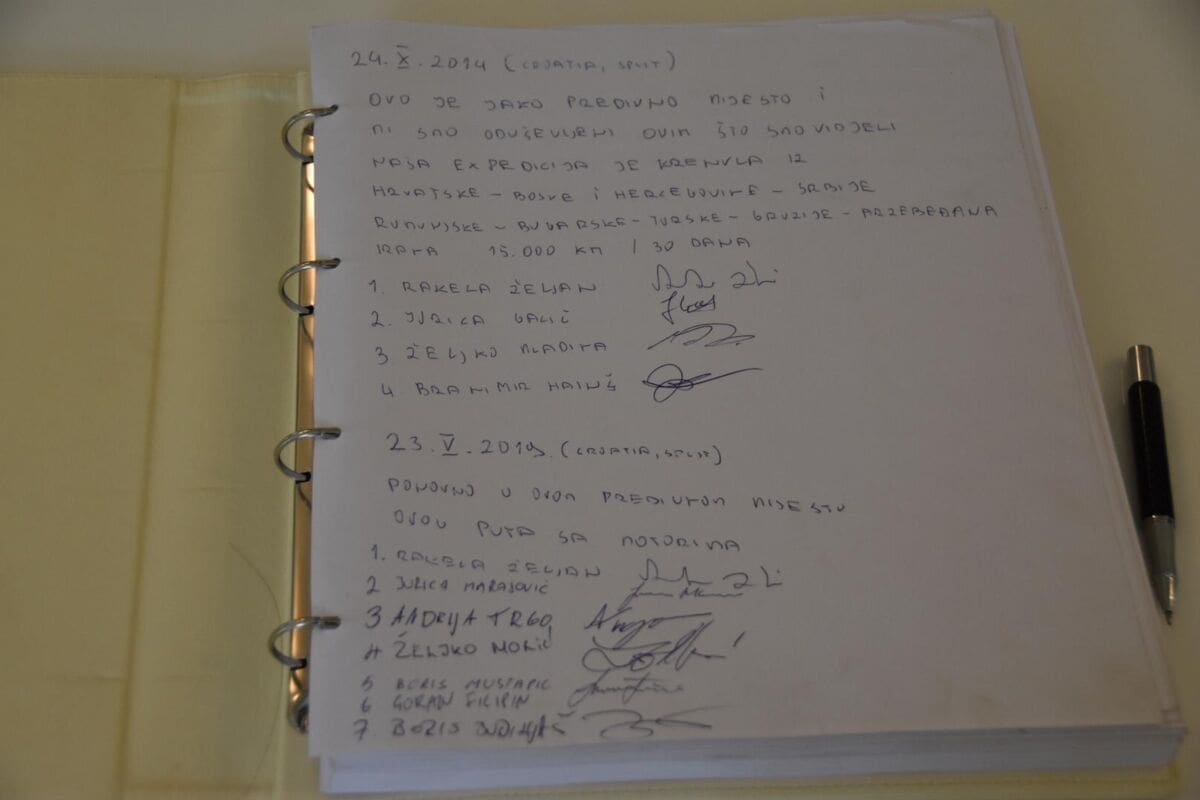 24. X. 2014 (CROATIA, SPLIT)
OVO JE JAKO PREDIVNO MJESTO I
MI SMO ODUŠEVLJENI OVIM ŠTO SMO VIDJELI
NAŠA EXPEDICIJA JE KRENULA IZ
HRVATSKE - BOSNE I HERCEGOVINE - SRBIJE
RUMUNJSKE - BUGARSKE - TURSKE - GRUZIJE - AZEBEĐANA
IRANA 15.000 KM / 30 DANA
1. RAKELA ŽELJAN
2. JURICA GALIĆ
3 ŽELJKO MLADINA
4 BRANIMIR
23. V. 2019. (CROATIA, SPLIT)
PONOVNO U OVOM PREDIVNOM MJESTU
OVOG PUTA SA MOTORIMA
1. RAKELA ŽELJAN
2 JURICA MARASOVIĆ
3 ANDRIJA TRGO
4 ŽELJKO
5 BORIS MUSTAPIĆ
6 GORAN FILIPIN
7. BORIS